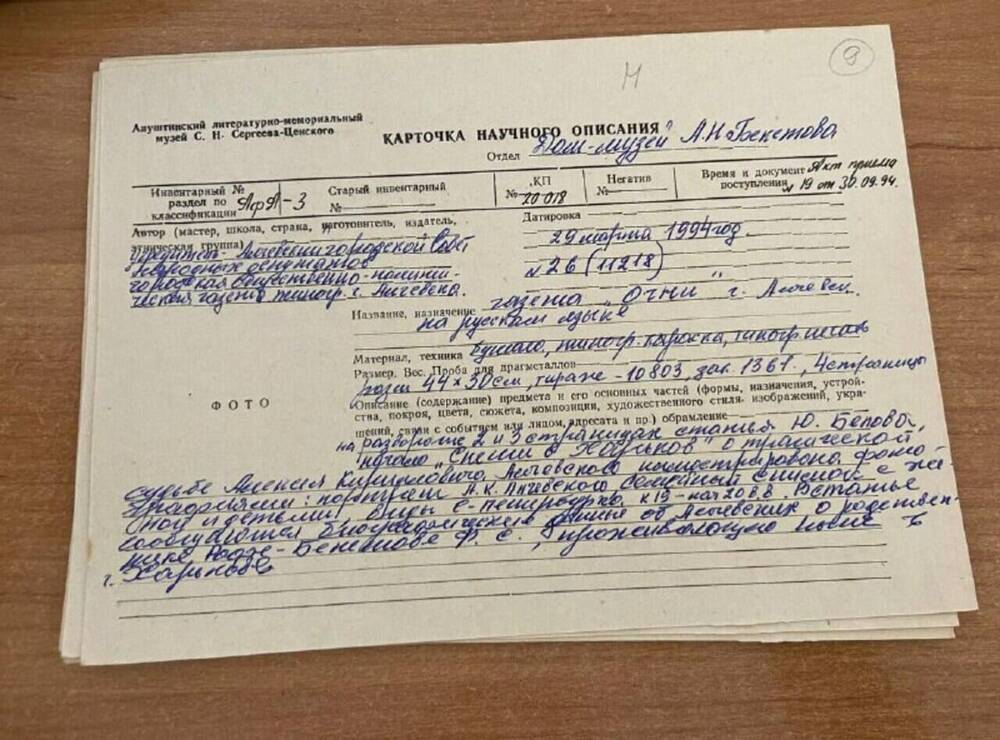 9
М
Алуштинский литературно-мемориальный
музей С. Н. Сергеева-Ценского
КАРТОЧКА НАУЧНОГО ОПИСАНИЯ
Отдел „Дом-музей А.Н. Бекетова
Инвентарный №
раздел по
классификации ЯфЛ-3
Старый инвентарный
№
КП
№ 20 018
Негатив
№
Время и документ Акт приема
поступления № 19 от 30.09.94.
Автор (мастер, школа, страна, изготовитель, издатель,
этническая группа)
учредитель - Алчевский городской Совет
народных депутатов
городская общественно-полити-
ческая газета типогр. г. Алчевска.
Датировка
29 марта 1994 год.
№ 26 (11218)
Название, назначение газета „Огни" г. Алчевск.
на русском языке
Материал, техника бумага, типогр. краска, типогр. печать
Размер. Вес. Проба для драгметаллов
разм 44 × 30 см, тираж - 10803, зак. 1361, 4 страницы
ФОТО
Описание (содержание) предмета и его основных частей (формы, назначения, устрой-
ства, покроя, цвета, сюжета, композиции, художественного стиля изображений, укра-
шений, связи с событием или лицом, адресата и пр.) обрамление
на развороте 2 и 3 страницах статья Ю. Белова,
начало о трагической
судьбе Алексея Кирилловича Алчевского иллюстрирована фото-
графиями: портрет А.К. Алчевского семейный снимок с же-
ной и детьми. Виды С-Петербурга к 19 - нач 20 в.в. В статье
сообщаются биографические данные об Алчевских, о родствен-
нике Ф. С., проживающую ныне в
г. Харькове